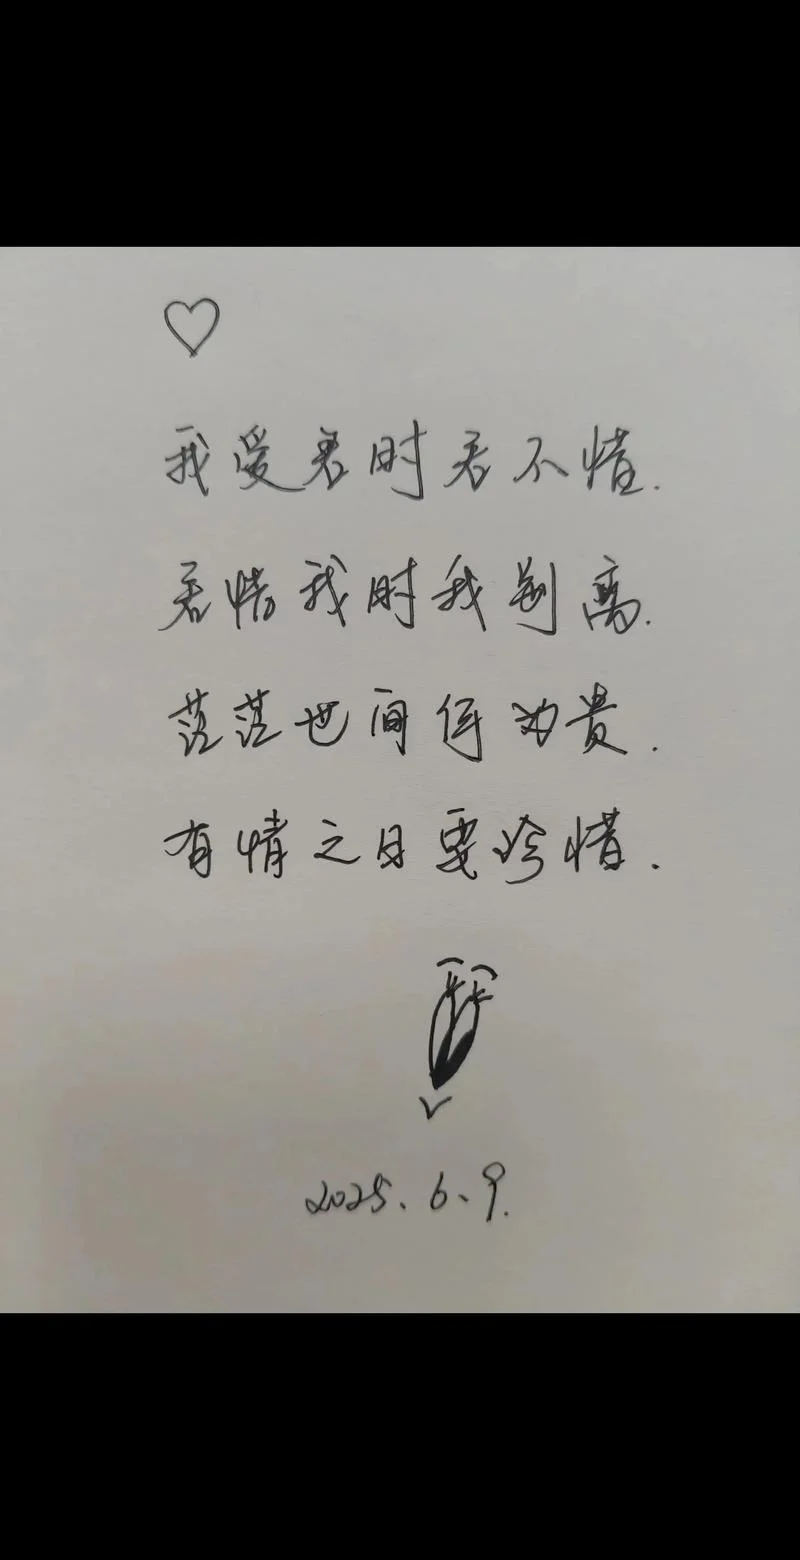 我爱君时君不惜.
君惜我时我别离.
落落世间何为贵.
有情之日要珍惜.
2025.6.9.